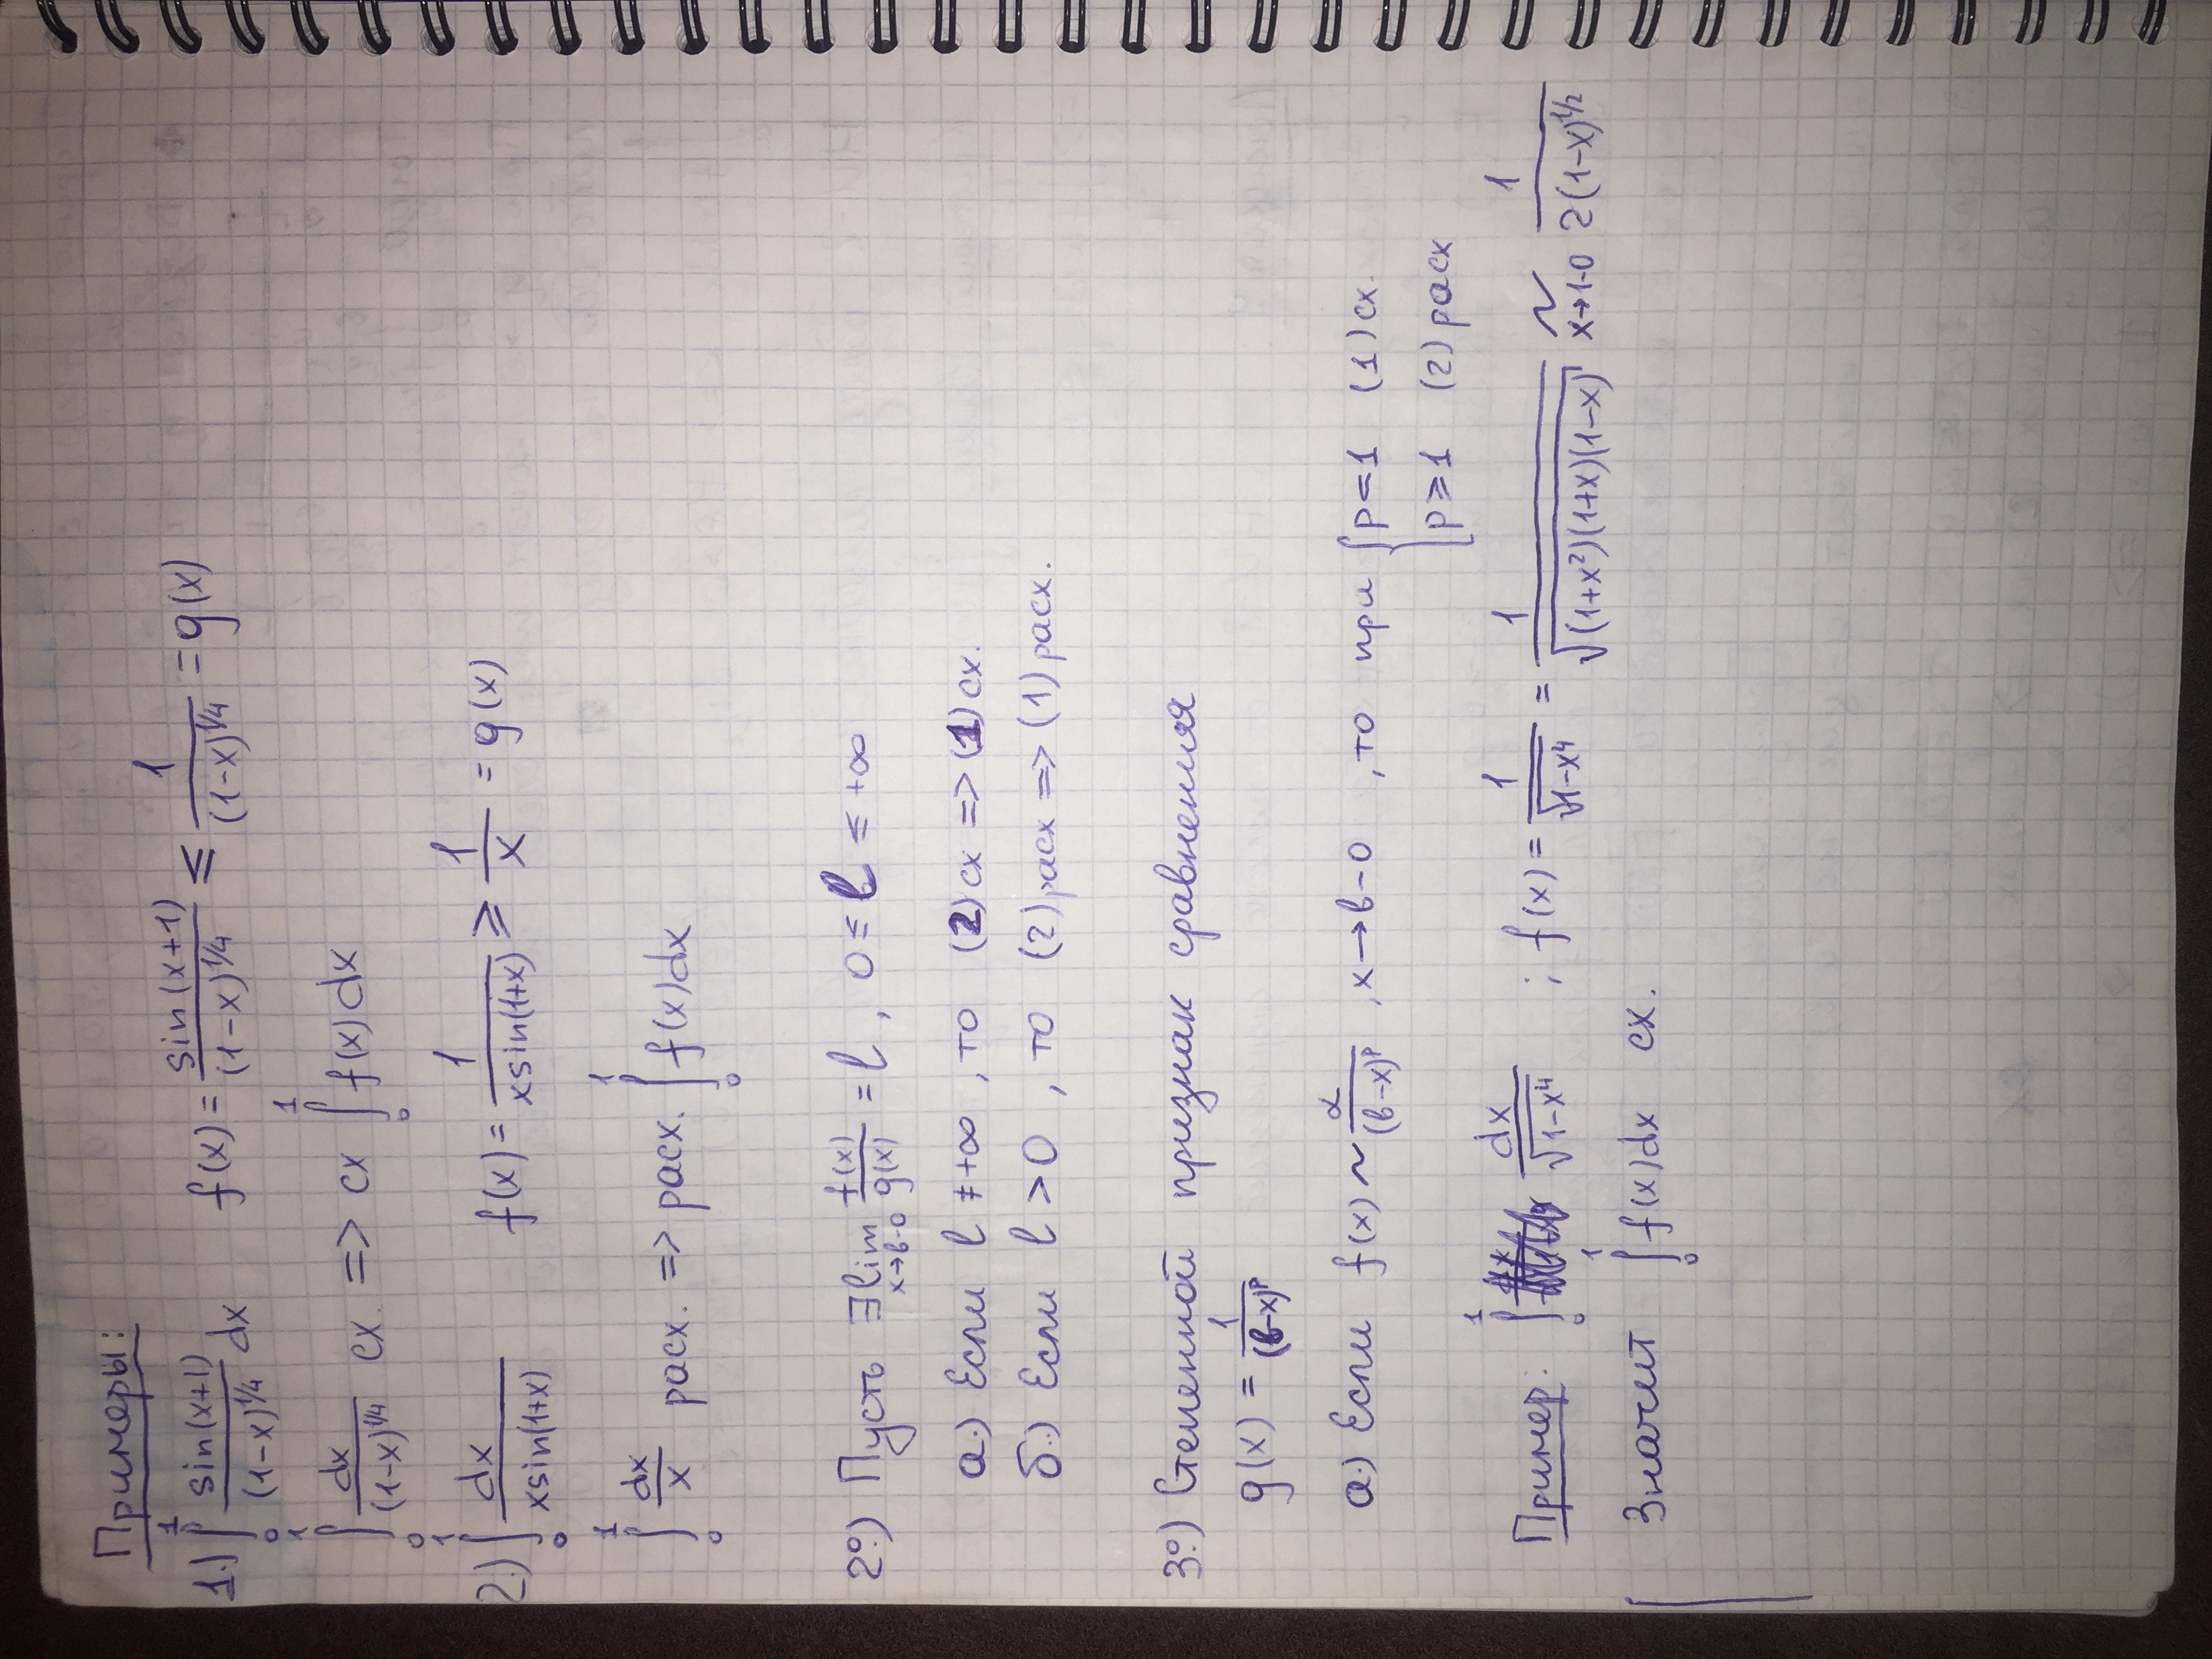 Примеры:
1.) ∫₀¹ sin(x+1)/(1-x)^1/4 dx f(x) = sin(x+1)/(1-x)^1/4 ⩽ 1/(1-x)^1/4 = g(x)
∫₀¹ dx/(1-x)^1/4 сх. => сх ∫₀¹ f(x)dx
2.) ∫₀¹ dx/xsin(1+x) f(x) = 1/xsin(1+x) ⩾ 1/x = g(x)
∫₀¹ dx/x расх. => расх. ∫₀¹ f(x)dx
2°.) Пусть ∃lim x→в-0 f(x)/g(x) = l, 0 ≤ l ≤ +∞
а.) Если l ≠ +∞, то (2) сх => (1) сх.
б.) Если l > 0, то (2) расх => (1) расх.
3°.) Степенной признак сравнения
g(x) = 1/(в-x)^p
а.) Если f(x) ~ α/(в-x)^p, x→в-0, то при { p<1 (1) сх.
p⩾1 (2) расх
Пример: ∫₀¹ dx/√(1-x⁴) ; f(x) = 1/√(1-x⁴) = 1/√((1+x²)(1+x)(1-x)) ~ x→1-0 1/2(1-x)^1/2
Значит ∫₀¹ f(x)dx сх.